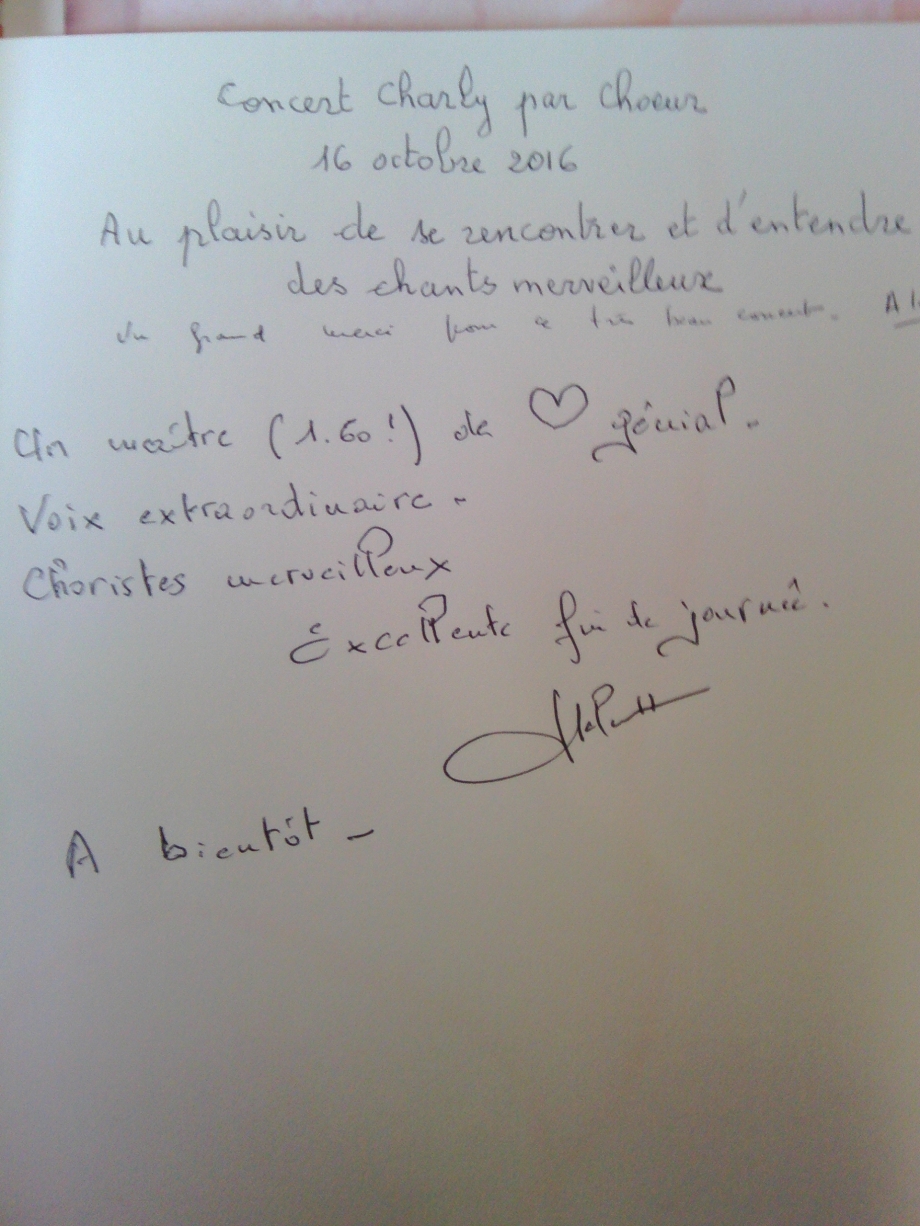 Concert Charly par Choeur
16 octobre 2016
Au plaisir de se rencontrer et d'entendre
des chants merveilleux
Un grand merci pour ce très beau concert. A
Un maître (1.60!) de ♡ génial.
Voix extraordinaire.
Choristes merveilleux
Excellente fin de journée.
A bientôt -